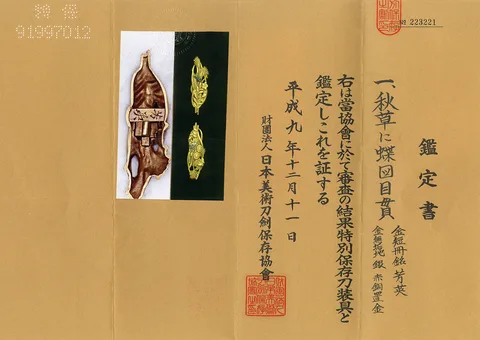 特保
91997012
№ 223221
鑑定書
一、秋草に蝶図目貫
金短冊銘 芳英
銀 赤銅置金
右は當協會に於て審査の結果特別保存刀装具と
鑑定しこれを証する
平成九年十二月十一日
財團法人 日本美術刀剣保存協會